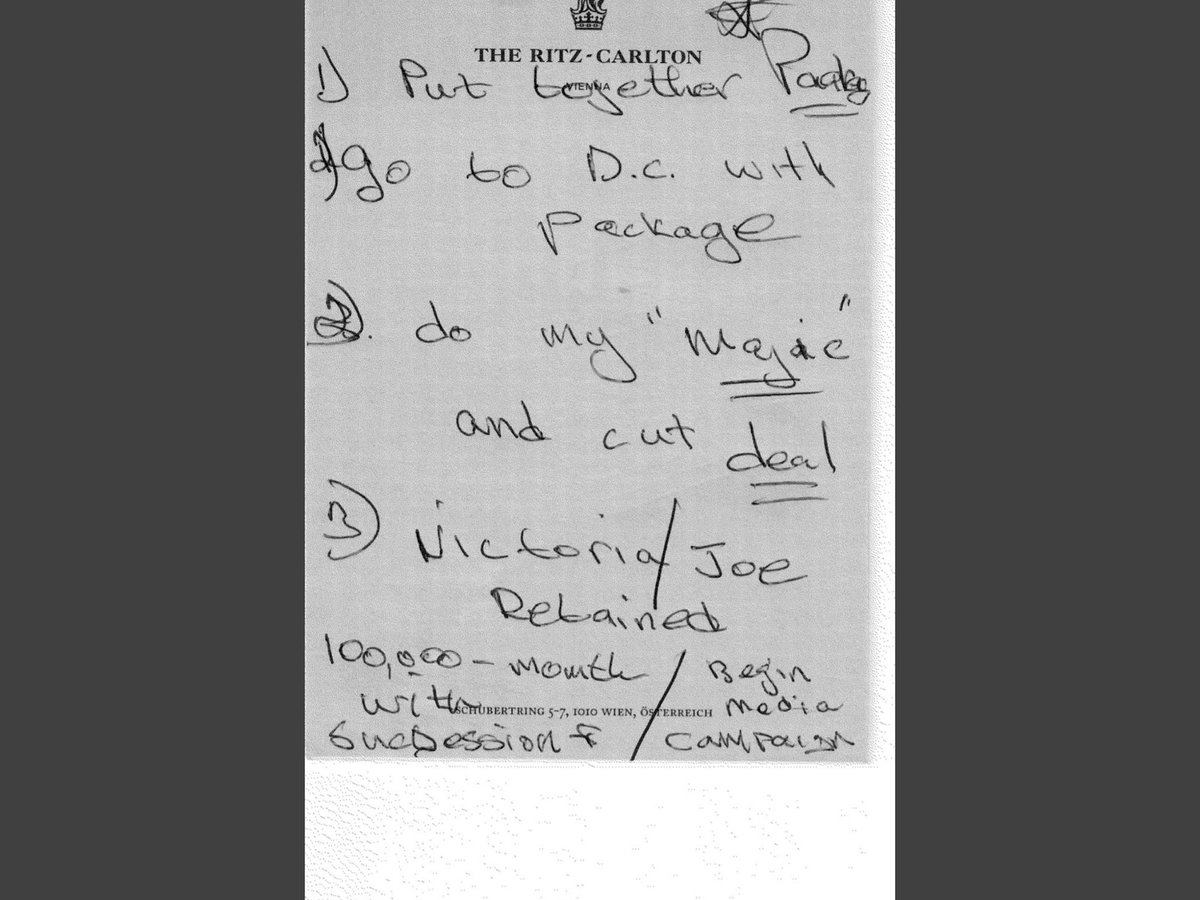 THE RITZ-CARLTON
VIENNA
1) Put together
2) go to D.C. with
package
do my "majic"
and cut deal
3) Victoria/Joe
Retained
100,000 - month / Begin
with / media
SCHUBERTRING 5-7, 1010 WIEN, ÖSTERREICH
/ campaign